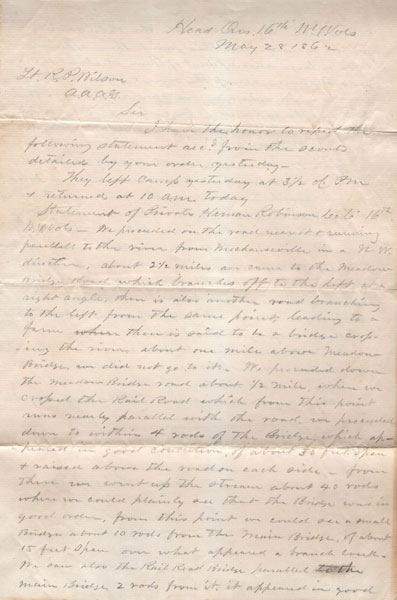 Head Qrs. 16th Mi Vols
May 28 1862
Lt. R. P. Wilson
A.A.A.G.
Sir
I have the honor to report the
following statement recd from the scouts
detailed by your order yesterday—
They left camp yesterday at 3½ o'c P.m
& returned at 10 A.m. today
Statement of Private Heman Robinson Co 16th
Mi Vols — We proceeded on the road nearest & running
parallel to the river from Mechanicsville in a N. W.
direction, about 2½ miles we came to the Meadow
Bridge Road which branches off to the left at a
right angle, there is also another road branching
to the left from the same point, leading to a
farm where there is said to be a bridge cross-
ing the river, about one mile above Meadow
Bridge, we did not go to it. We proceeded down
the Meadow Bridge road about ½ mile, when we
crossed the Rail Road which from this point
runs nearly parallel with the road, we proceeded
down to within 4 rods of the Bridge, which ap-
peared in good condition, of about 30 feet span
& raised above the road on each side — from
there we went up the stream about 40 rods
where we could plainly see that the Bridge was in
good order, from this point we could see a small
Bridge about 10 rods from the Main Bridge, of about
15 feet span over what appeared a branch creek—
We saw also the Rail Road Bridge parallel to the
main Bridge 2 rods from it, it appeared in good